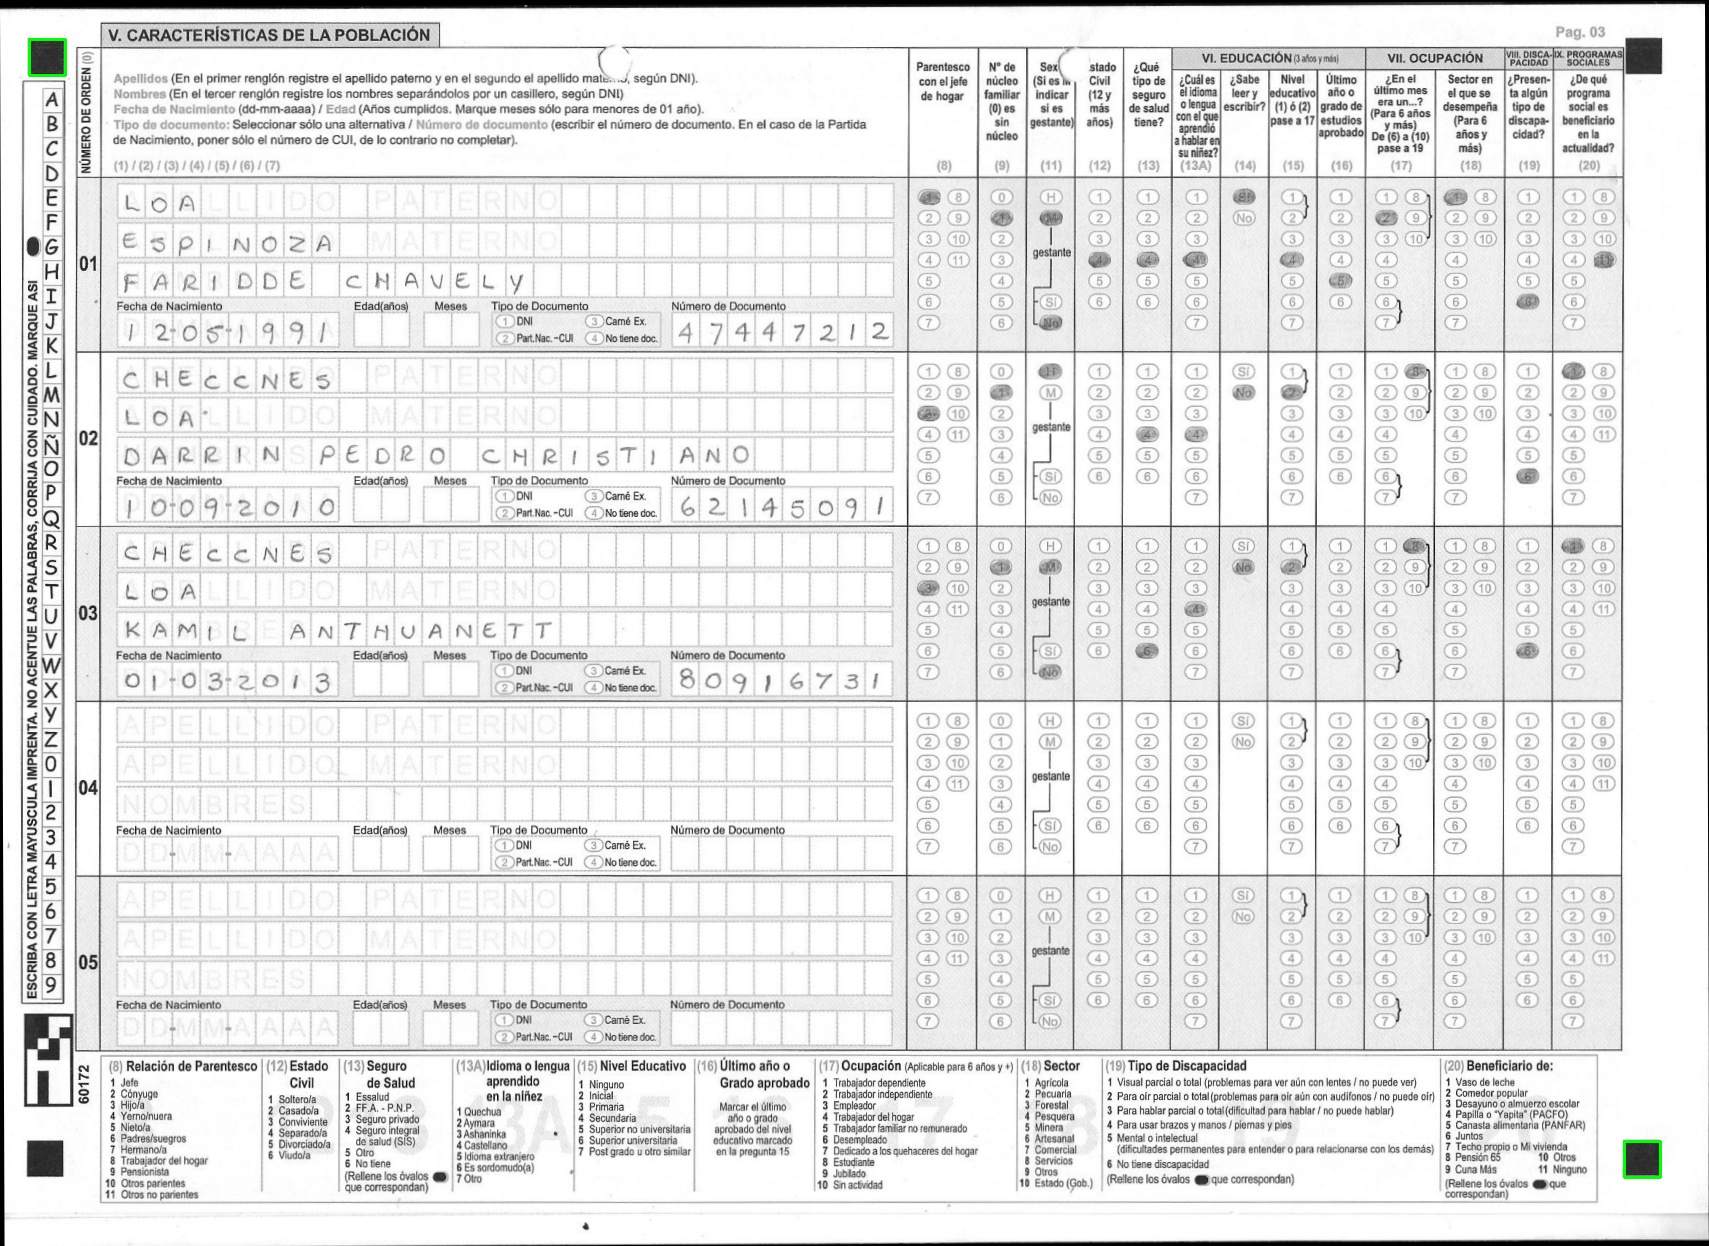 V. CARACTERÍSTICAS DE LA POBLACIÓN
Pag. 03
NÚMERO DE ORDEN (0)
Apellidos (En el primer renglón registre el apellido paterno y en el segundo el apellido mate , según DNI).
Nombres (En el tercer renglón registre los nombres separándolos por un casillero, según DNI)
Fecha de Nacimiento (dd-mm-aaaa) / Edad (Años cumplidos. Marque meses sólo para menores de 01 año).
Tipo de documento: Seleccionar sólo una alternativa / Número de documento (escribir el número de documento. En el caso de la Partida
de Nacimiento, poner sólo el número de CUI, de lo contrario no completar).
(1) / (2) / (3) / (4) / (5) / (6) / (7)
Parentesco con el jefe de hogar (8)
Nº de núcleo familiar (0) es sin núcleo (9)
Sex (Si es M indicar si es gestante) (11)
stado Civil (12 y más años) (12)
¿Qué tipo de seguro de salud tiene? (13)
VI. EDUCACIÓN (3 años y más)
¿Cuál es el idioma o lengua con el que aprendió a hablar en su niñez? (13A)
¿Sabe leer y escribir? (14)
Nivel educativo (1) ó (2) pase a 17 (15)
Último año o grado de estudios aprobado (16)
VII. OCUPACIÓN
¿En el último mes era un...? (Para 6 años y más) De (6) a (10) pase a 19 (17)
Sector en el que se desempeña (Para 6 años y más) (18)
VIII. DISCAPACIDAD
¿Presenta algún tipo de discapacidad? (19)
IX. PROGRAMAS SOCIALES
¿De qué programa social es beneficiario en la actualidad? (20)
ESCRIBA CON LETRA MAYUSCULA IMPRENTA. NO ACENTUE LAS PALABRAS, CORRIJA CON CUIDADO. MARQUE ASI
A B C D E F G H I J K L M N Ñ O P Q R S T U V W X Y Z 0 1 2 3 4 5 6 7 8 9
01
LOA
ESPINOZA
FARIDDE CHAVELY
Fecha de Nacimiento Edad(años) Meses Tipo de Documento Número de Documento
1 DNI 3 Carné Ex.
2 Part.Nac.-CUI 4 No tiene doc.
12-05-1991 47447212
gestante
02
CHECCNES
LOA
DARRIN PEDRO CHRISTIANO
Fecha de Nacimiento Edad(años) Meses Tipo de Documento Número de Documento
1 DNI 3 Carné Ex.
2 Part.Nac.-CUI 4 No tiene doc.
10-09-2010 62145091
gestante
03
CHECCNES
LOA
KAMIL ANTHUANETT
Fecha de Nacimiento Edad(años) Meses Tipo de Documento Número de Documento
1 DNI 3 Carné Ex.
2 Part.Nac.-CUI 4 No tiene doc.
01-03-2013 80916731
gestante
04
APELLIDO PATERNO
APELLIDO MATERNO
NOMBRES
Fecha de Nacimiento Edad(años) Meses Tipo de Documento Número de Documento
1 DNI 3 Carné Ex.
2 Part.Nac.-CUI 4 No tiene doc.
DD-MM-AAAA
gestante
05
APELLIDO PATERNO
APELLIDO MATERNO
NOMBRES
Fecha de Nacimiento Edad(años) Meses Tipo de Documento Número de Documento
1 DNI 3 Carné Ex.
2 Part.Nac.-CUI 4 No tiene doc.
DD-MM-AAAA
gestante
60172
(8) Relación de Parentesco
1 Jefe
2 Cónyuge
3 Hijo/a
4 Yerno/nuera
5 Nieto/a
6 Padres/suegros
7 Hermano/a
8 Trabajador del hogar
9 Pensionista
10 Otros parientes
11 Otros no parientes
(12) Estado Civil
1 Soltero/a
2 Casado/a
3 Conviviente
4 Separado/a
5 Divorciado/a
6 Viudo/a
(13) Seguro de Salud
1 Essalud
2 FF.A. - P.N.P.
3 Seguro privado
4 Seguro integral de salud (SIS)
5 Otro
6 No tiene
(Rellene los óvalos que correspondan)
(13A) Idioma o lengua aprendido en la niñez
1 Quechua
2 Aymara
3 Ashaninka
4 Castellano
5 Idioma extranjero
6 Es sordomudo(a)
7 Otro
(15) Nivel Educativo
1 Ninguno
2 Inicial
3 Primaria
4 Secundaria
5 Superior no universitaria
6 Superior universitaria
7 Post grado u otro similar
(16) Último año o Grado aprobado
Marcar el último año o grado aprobado del nivel educativo marcado en la pregunta 15
(17) Ocupación (Aplicable para 6 años y +)
1 Trabajador dependiente
2 Trabajador independiente
3 Empleador
4 Trabajador del hogar
5 Trabajador familiar no remunerado
6 Desempleado
7 Dedicado a los quehaceres del hogar
8 Estudiante
9 Jubilado
10 Sin actividad
(18) Sector
1 Agrícola
2 Pecuaria
3 Forestal
4 Pesquera
5 Minera
6 Artesanal
7 Comercial
8 Servicios
9 Otros
10 Estado (Gob.)
(19) Tipo de Discapacidad
1 Visual parcial o total (problemas para ver aún con lentes / no puede ver)
2 Para oír parcial o total (problemas para oír aún con audífonos / no puede oír)
3 Para hablar parcial o total (dificultad para hablar / no puede hablar)
4 Para usar brazos y manos / piernas y pies
5 Mental o intelectual
(dificultades permanentes para entender o para relacionarse con los demás)
6 No tiene discapacidad
(Rellene los óvalos que correspondan)
(20) Beneficiario de:
1 Vaso de leche
2 Comedor popular
3 Desayuno o almuerzo escolar
4 Papilla o "Yapita" (PACFO)
5 Canasta alimentaria (PANFAR)
6 Juntos
7 Techo propio o Mi vivienda
8 Pensión 65 10 Otros
9 Cuna Más 11 Ninguno
(Rellene los óvalos que correspondan)